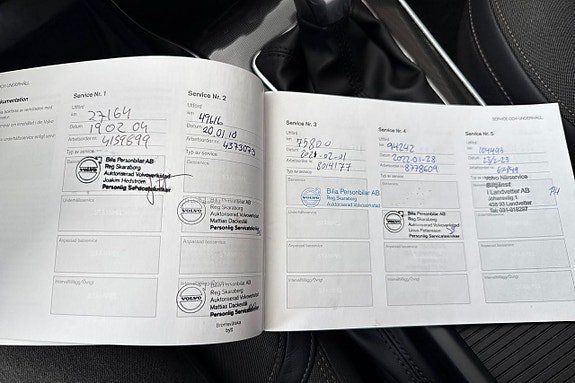 OCH UNDERHÅLL
Service Nr. 1
Utförd
km 27164
Datum 19 02 04
Arbetsorder nr. 4159899
Typ av service
Bilia Personbilar AB
Reg Skaraborg
Auktoriserad Volvoverkstad
Joakim Hedström
Personlig Servicetekniker
VOLVO
Underhållsservice
Anpassad basservice
Intervalltillägg/Övrigt
Service Nr. 2
Utförd
km 49616
Datum 20.01.10
Arbetsorder nr. 4573073
Typ av service
Basservice
VOLVO
Bilia Personbilar AB
Reg Skaraborg
Auktoriserad Volvoverkstad
Mattias Dackestål
Personlig Servicetekniker
Anpassad basservice
Intervalltillägg/Övrigt
VOLVO
Bilia Personbilar AB
Reg Skaraborg
Auktoriserad Volvoverkstad
Mattias Dackestål
Personlig Servicetekniker
Bromsvätska
byt
SERVICE OCH UNDERHÅLL
Service Nr. 3
Utförd
km 75800
Datum 2021-02-01
Arbetsorder nr. 8014177
Typ av service
Basservice
Bilia Personbilar AB
Reg Skaraborg
Auktoriserad Volvoverkstad
Underhållsservice
Anpassad basservice
Intervalltillägg/Övrigt
Service Nr. 4
Utförd
km 94242
Datum 2022-01-28
Arbetsorder nr. 8778609
Typ av service
Basservice
VOLVO
Bilia Personbilar AB
Reg Skaraborg
Auktoriserad Volvoverkstad
Linus Pettersson
Personlig Servicetekniker
Anpassad basservice
Intervalltillägg/Övrigt
Service Nr. 5
Utförd
km 104493
Datum 23/2-23
Arbetsorder nr.
Typ av service
Volvo Närservice
Biltjänst
i Landvetter AB
438 33 Landvetter
Tel: 031-918297
PH
Underhållsservice
Anpassad basservice
Intervalltillägg/Övrigt